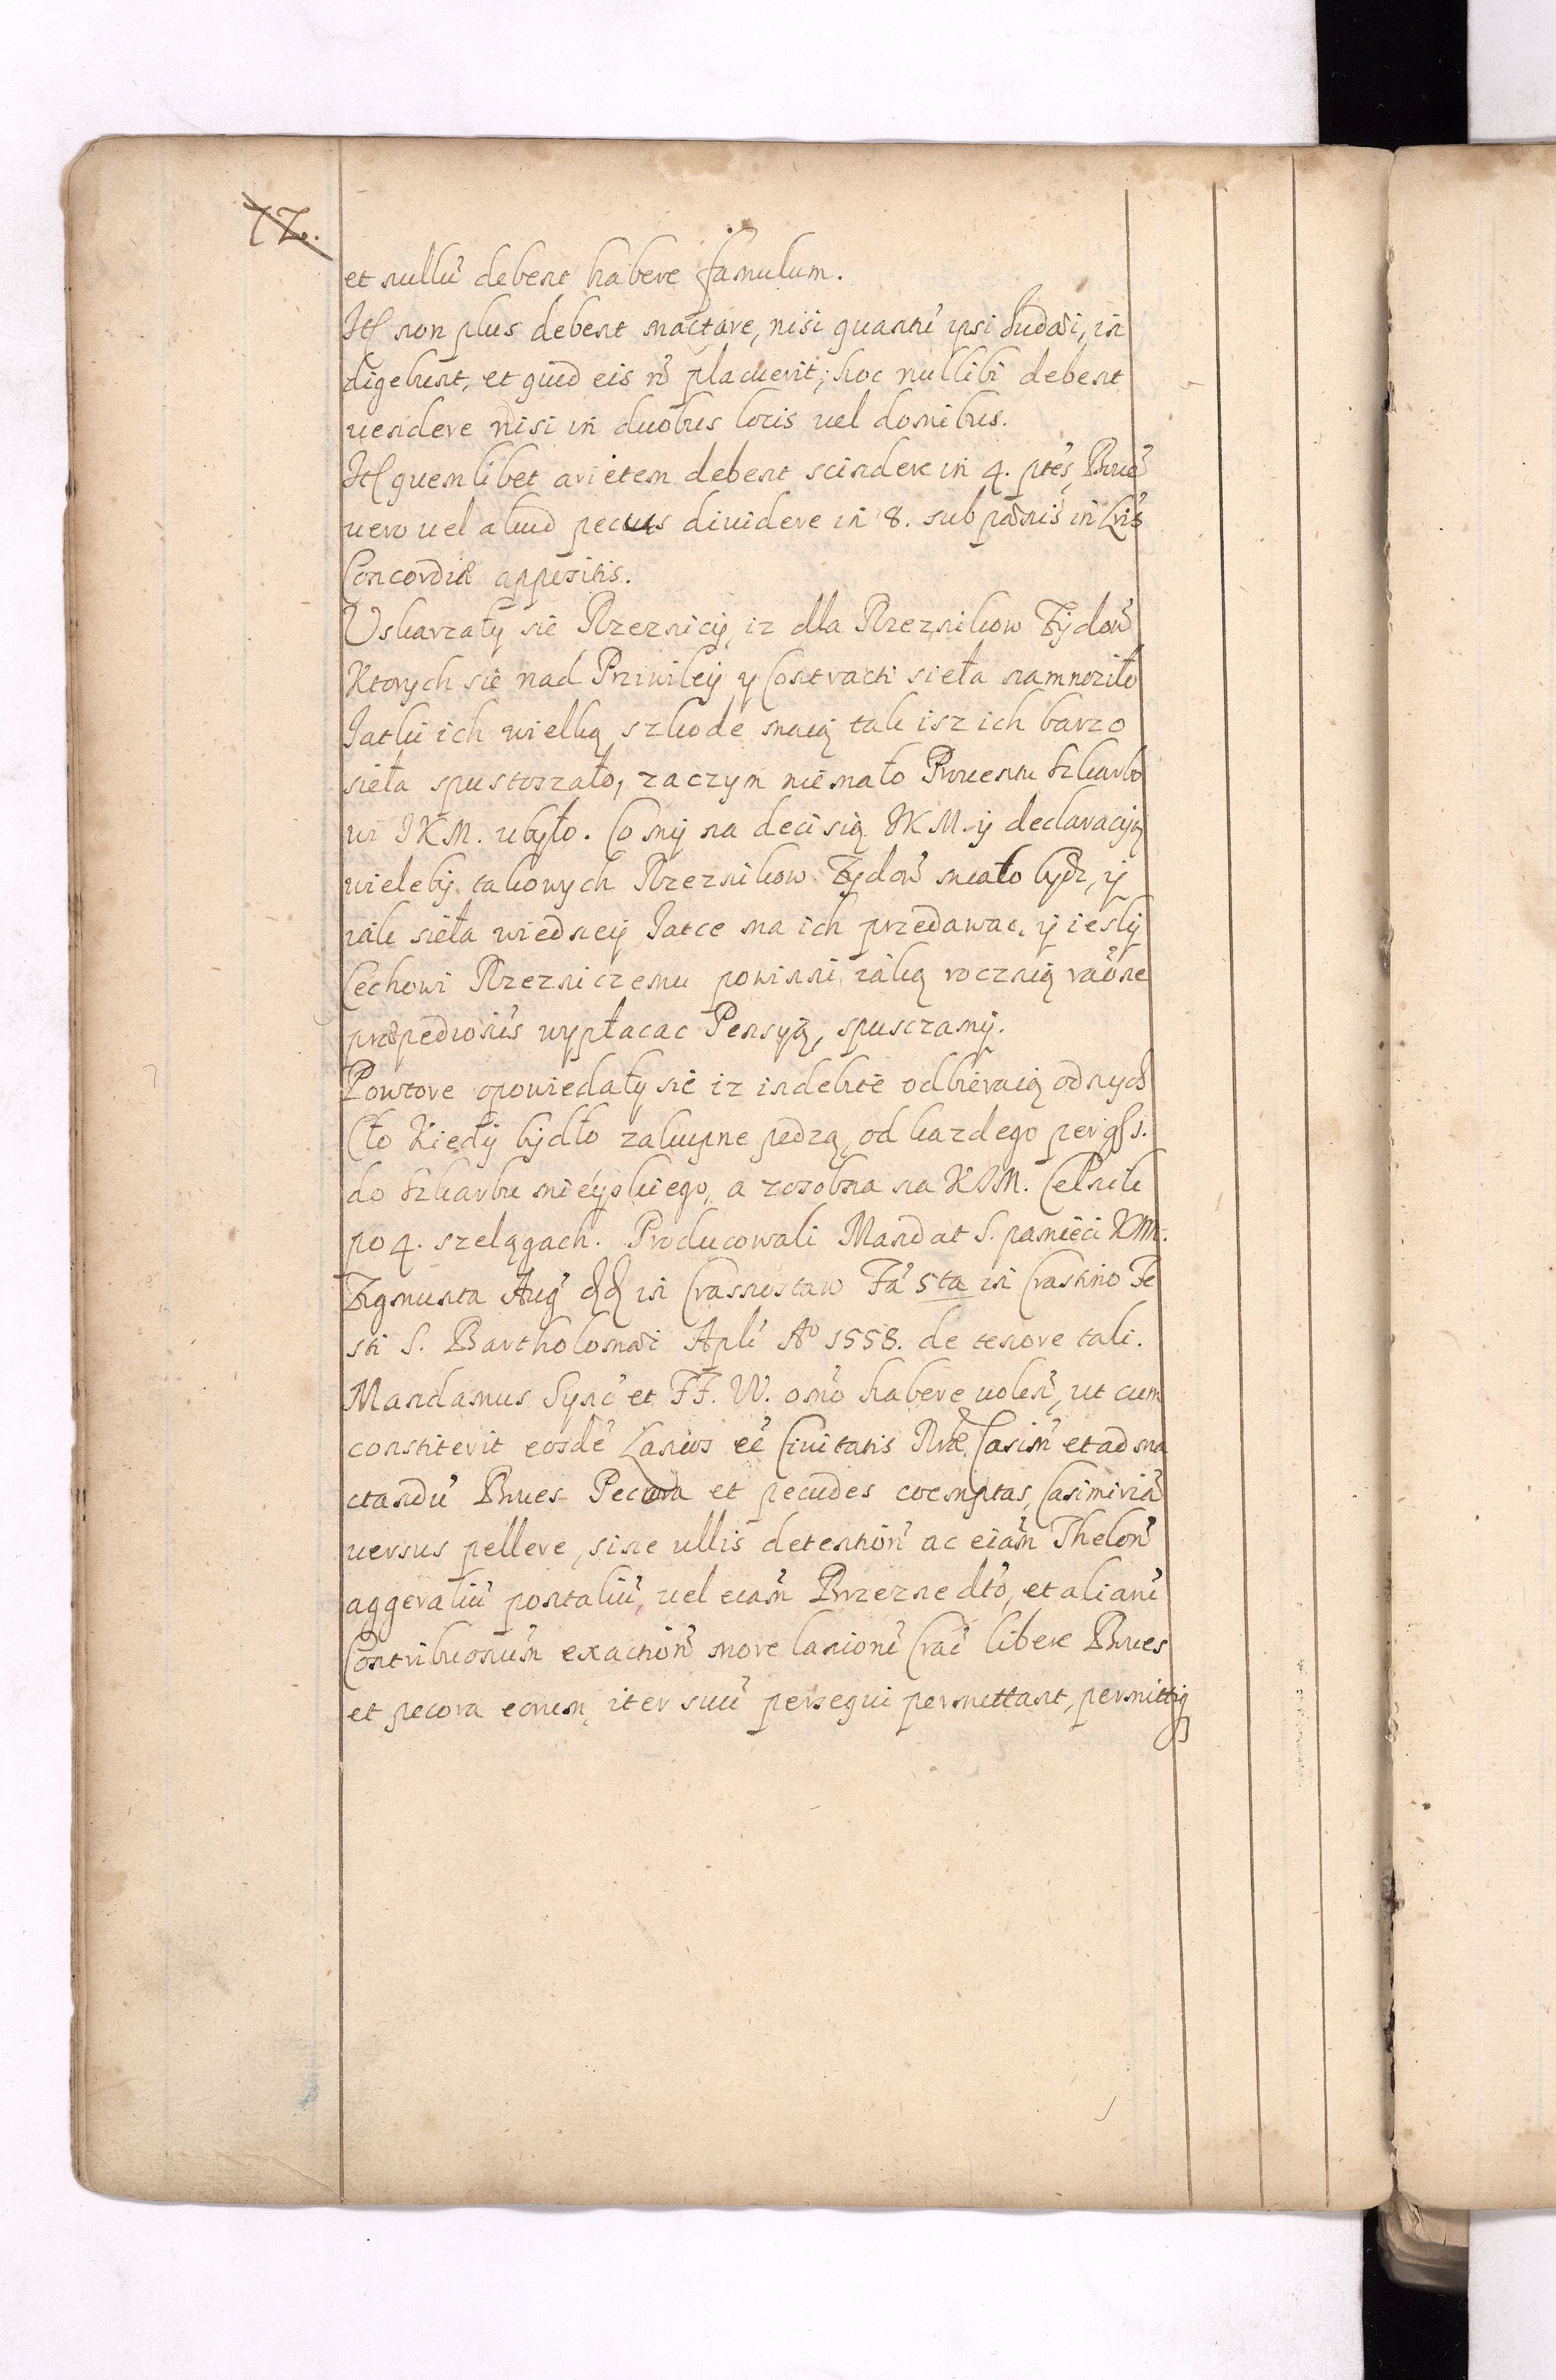 72.
et nullũ debent habere famulum.
Itẽ non plus debent mactare, nisi quantũ ipsi Iudæi, in
digebunt, et quid eis nõ placuerit, hoc nullibi debent
uendere nisi in duobus locis uel domibus.
Itẽ quemlibet arietem debent scindere in 4. ptes, Bouẽ
uero uel aliud pecus diuidere in 8. sub pænis in Lris
Concordiæ appositis.
Uskarzały sie Rzeznicy, iz dla Rzeznikow Zydow̃
Ktorych sie nad Priwiley y Contract siełа namnoziło
Iatki ich wielką szkode maią tak isz ich barzo
sieła spustoszało, zaczym niemało Prouentu Szkarbo
wi IKM. ubyło. Co my na decisią IKM. y declaracyą
wieleby takowych Rzeznikow Zydow̃ miało bydz, y
iák sieła wiedney Iatce ma ich przedawac, y iesly
Cechowi Rzezniczemu powinni iáką roczną raõne
præpedionis wypłacac Pensyą, spusczamy.
Powtore opowiedały sie iz indebite odbieraią odnych
Cło Kiedy bydło zakupne pędzą, od kazdego per gſſ 1.
do Szkarbu mieyskiego, a zosobna na KIM. Celnik
po 4. szelągach. Producowali Mandat S. pamięci KIM.
Zygmunta Aug̃ in Crasnostaw Fã 5ta in Crastino Fe
sti S. Bartholomæi Apli Aº 1558. de tenore tali.
Mandamus Sync̃ et FF. VV. omõ habere uolen̄, ut cum
constiterit eosdẽ Lanios eẽ Ciuitatis Nr̃æ Casim̃ et ad ma
ctandũ Boues Pecora et pecudes coemptas, Casimiriã
uersus pellere, sine ullis detention̄ ac eiam̃ Thelon̄
aggeraliũ pontaliũ, uel eiam̃ Brzezne dto, et aliarũ
Contribuonum̃ exaction̄ more lanionũ Crac̃ libere Boues
et pecora eorum, iter suũ persequi permittant, permittiq;